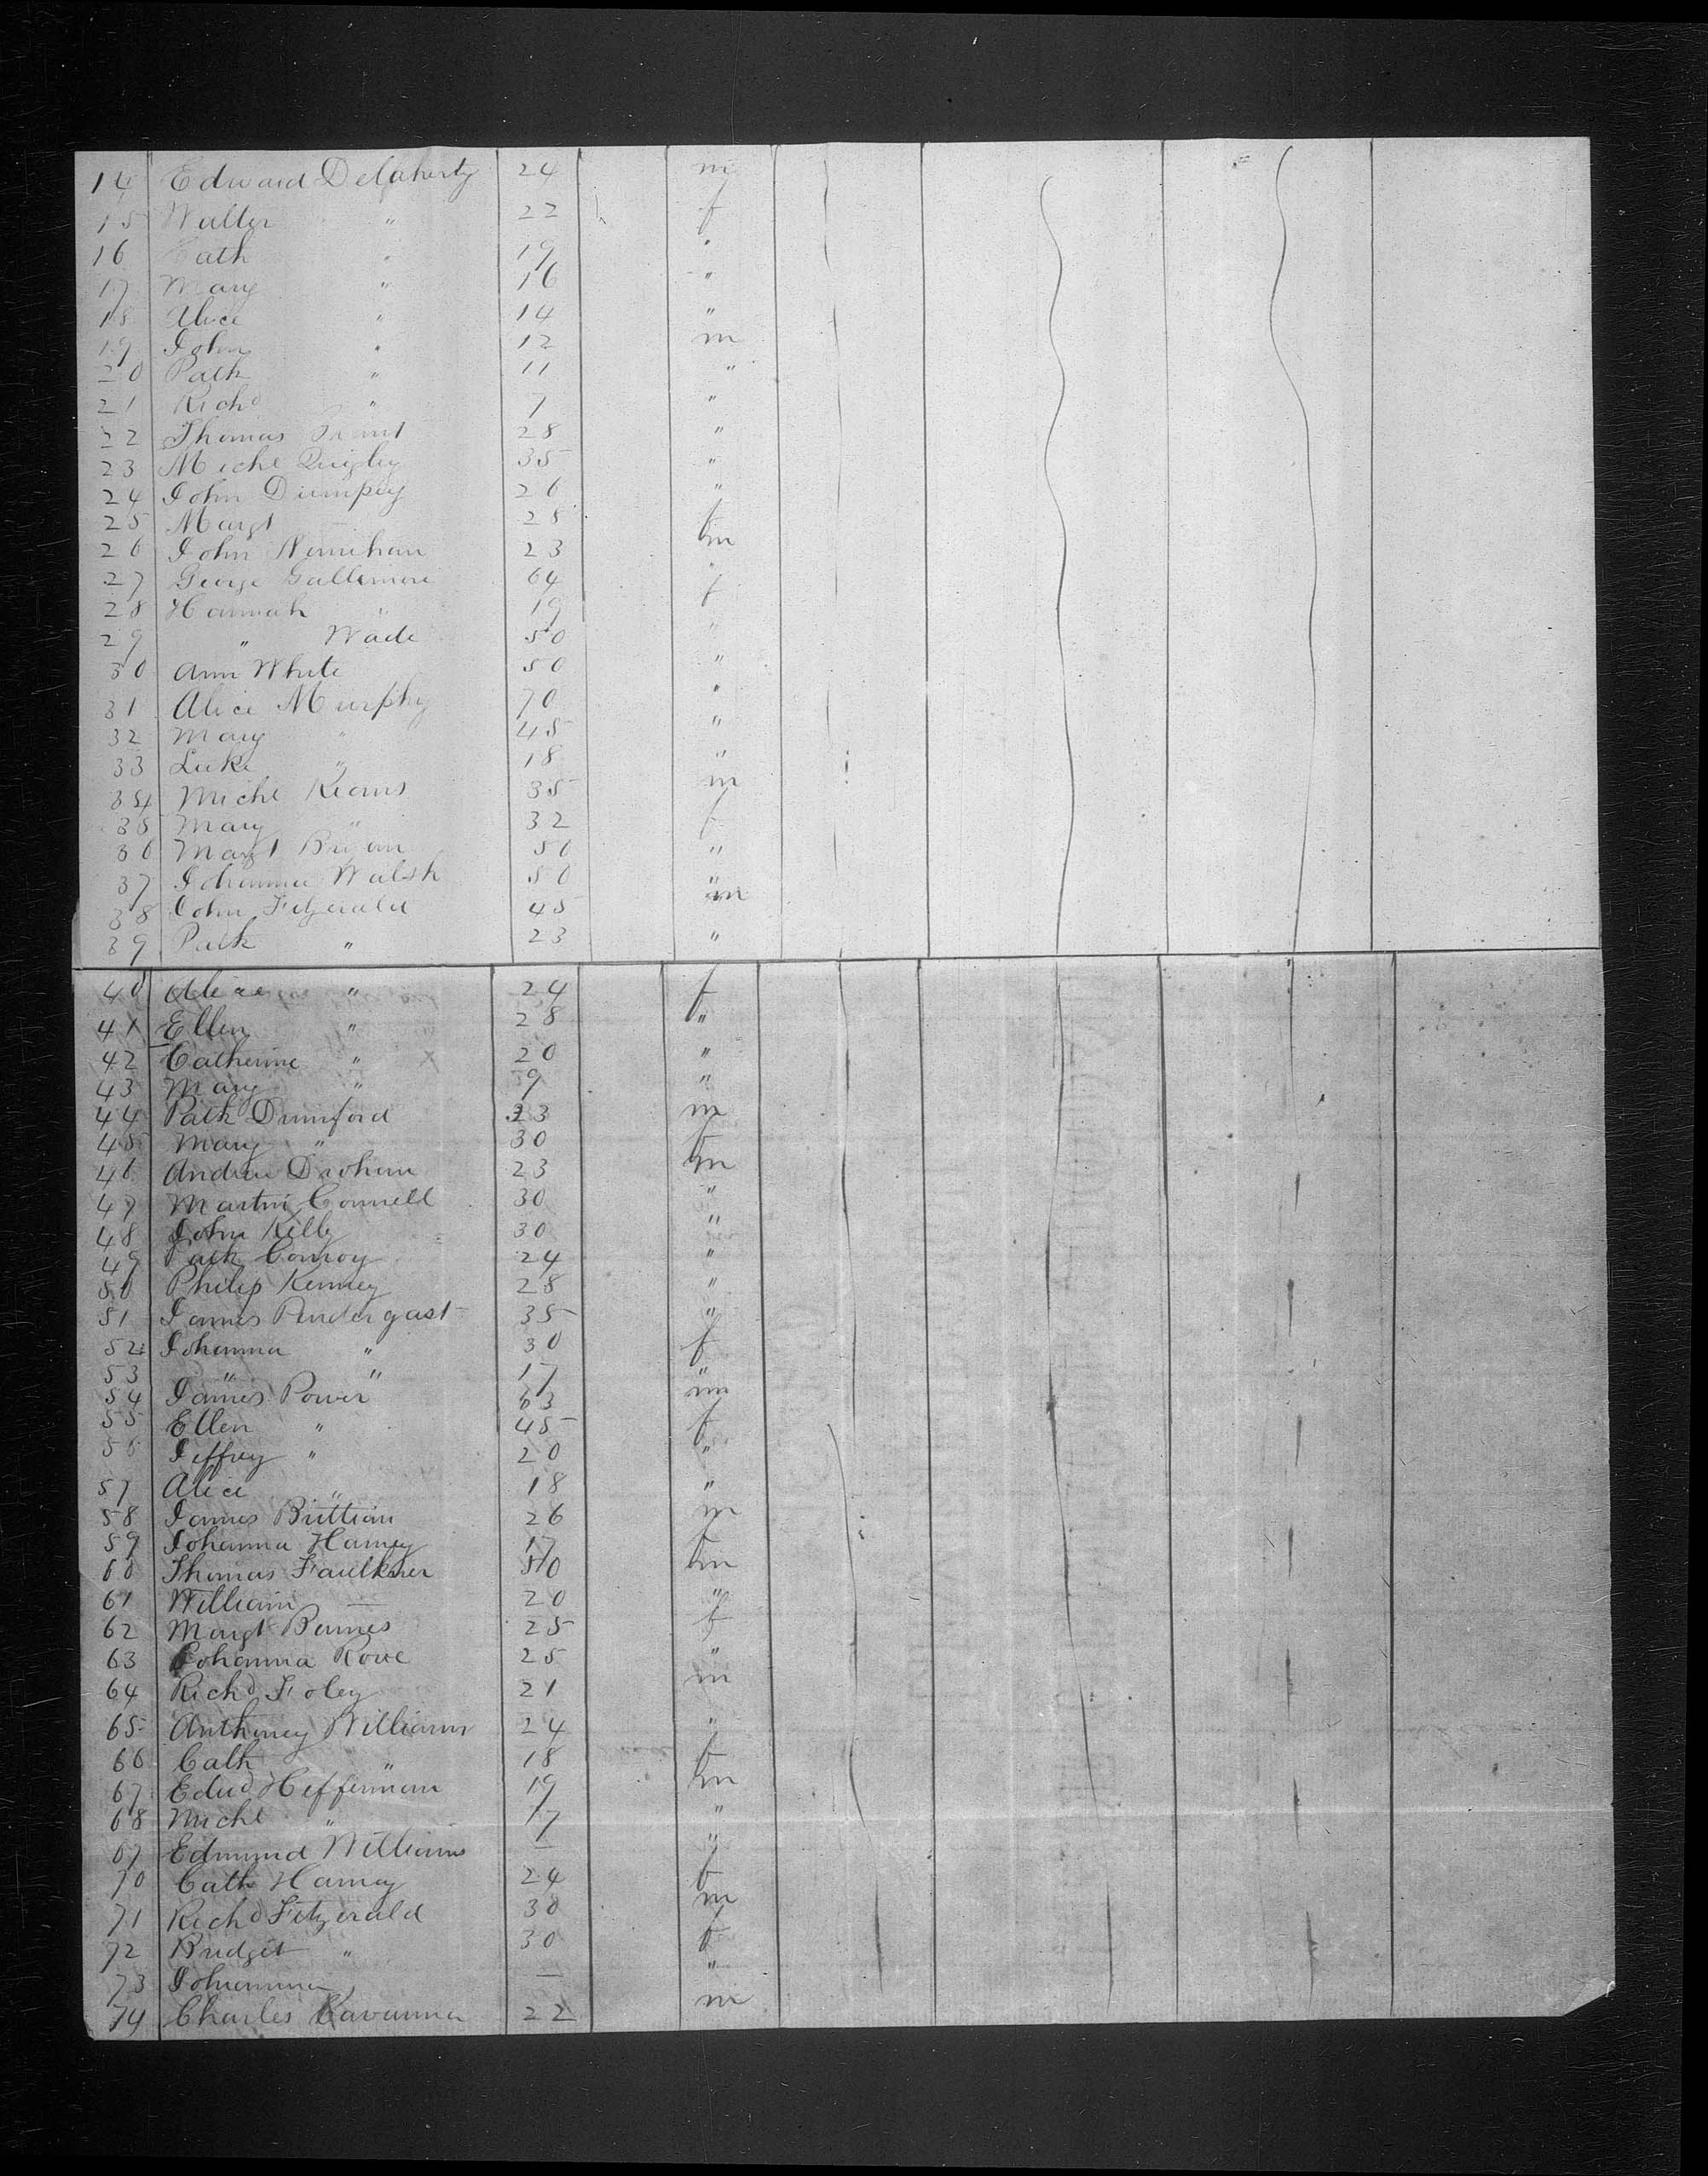 14 Edward Delaherty 24 m
15 Walter " 22 f
16 Cath " 19 "
17 Mary " 16 "
18 Alice " 14 "
19 John " 12 m
20 Patk " 11 "
21 Richd " 1 "
22 Thomas Trant 28 "
23 Michl Quigley 35 "
24 John Dumpey 26 "
25 Margt — 28 f
26 John Nernihan 23 m
27 George Gallemore 64 "
28 Hannah " 19 f
29 " Wade 50 "
30 Ann White 50 "
31 Alice Murphy 70 "
32 Mary " 45 "
33 Luke " 18 "
34 Michl Kearns 35 m
35 Mary " 32 f
36 Margt Bryan 50 "
37 Johanna Walsh 50 "
38 John Fitzerald 45 m
39 Patk " 23 "
40 Alice " 24 f
41 Ellen " 28 "
42 Catherine " 20 "
43 Mary " 9 "
44 Patk Dunford 23 m
45 Mary " 30 f
46 Andrew Drohan 23 m
47 Martin Connell 30 "
48 John Killy 30 "
49 Patk Conroy 24 "
50 Philip Kenney 28 "
51 James Pendergast 35 "
52 Johanna " 30 f
53 " " 17 "
54 James Power 63 m
55 Ellen " 45 f
56 Jeffrey " 20 "
57 Alice " 18 "
58 James Brittian 26 m
59 Johanna Harney 17 f
60 Thomas Faulkner 50 m
61 William — 20 "
62 Margt Barnes 25 f
63 Johanna Rowe 25 "
64 Richd Foley 21 m
65 Anthoney Williams 24 "
66 Cath " 18 f
67 Edwd Heffernan 19 m
68 Michl " 17 "
69 Edmund Williams 1 "
70 Cath Harney 24 f
71 Richd Fitzerald 30 m
72 Bridget " 30 f
73 Johanna — "
74 Charles Kavanna 22 m